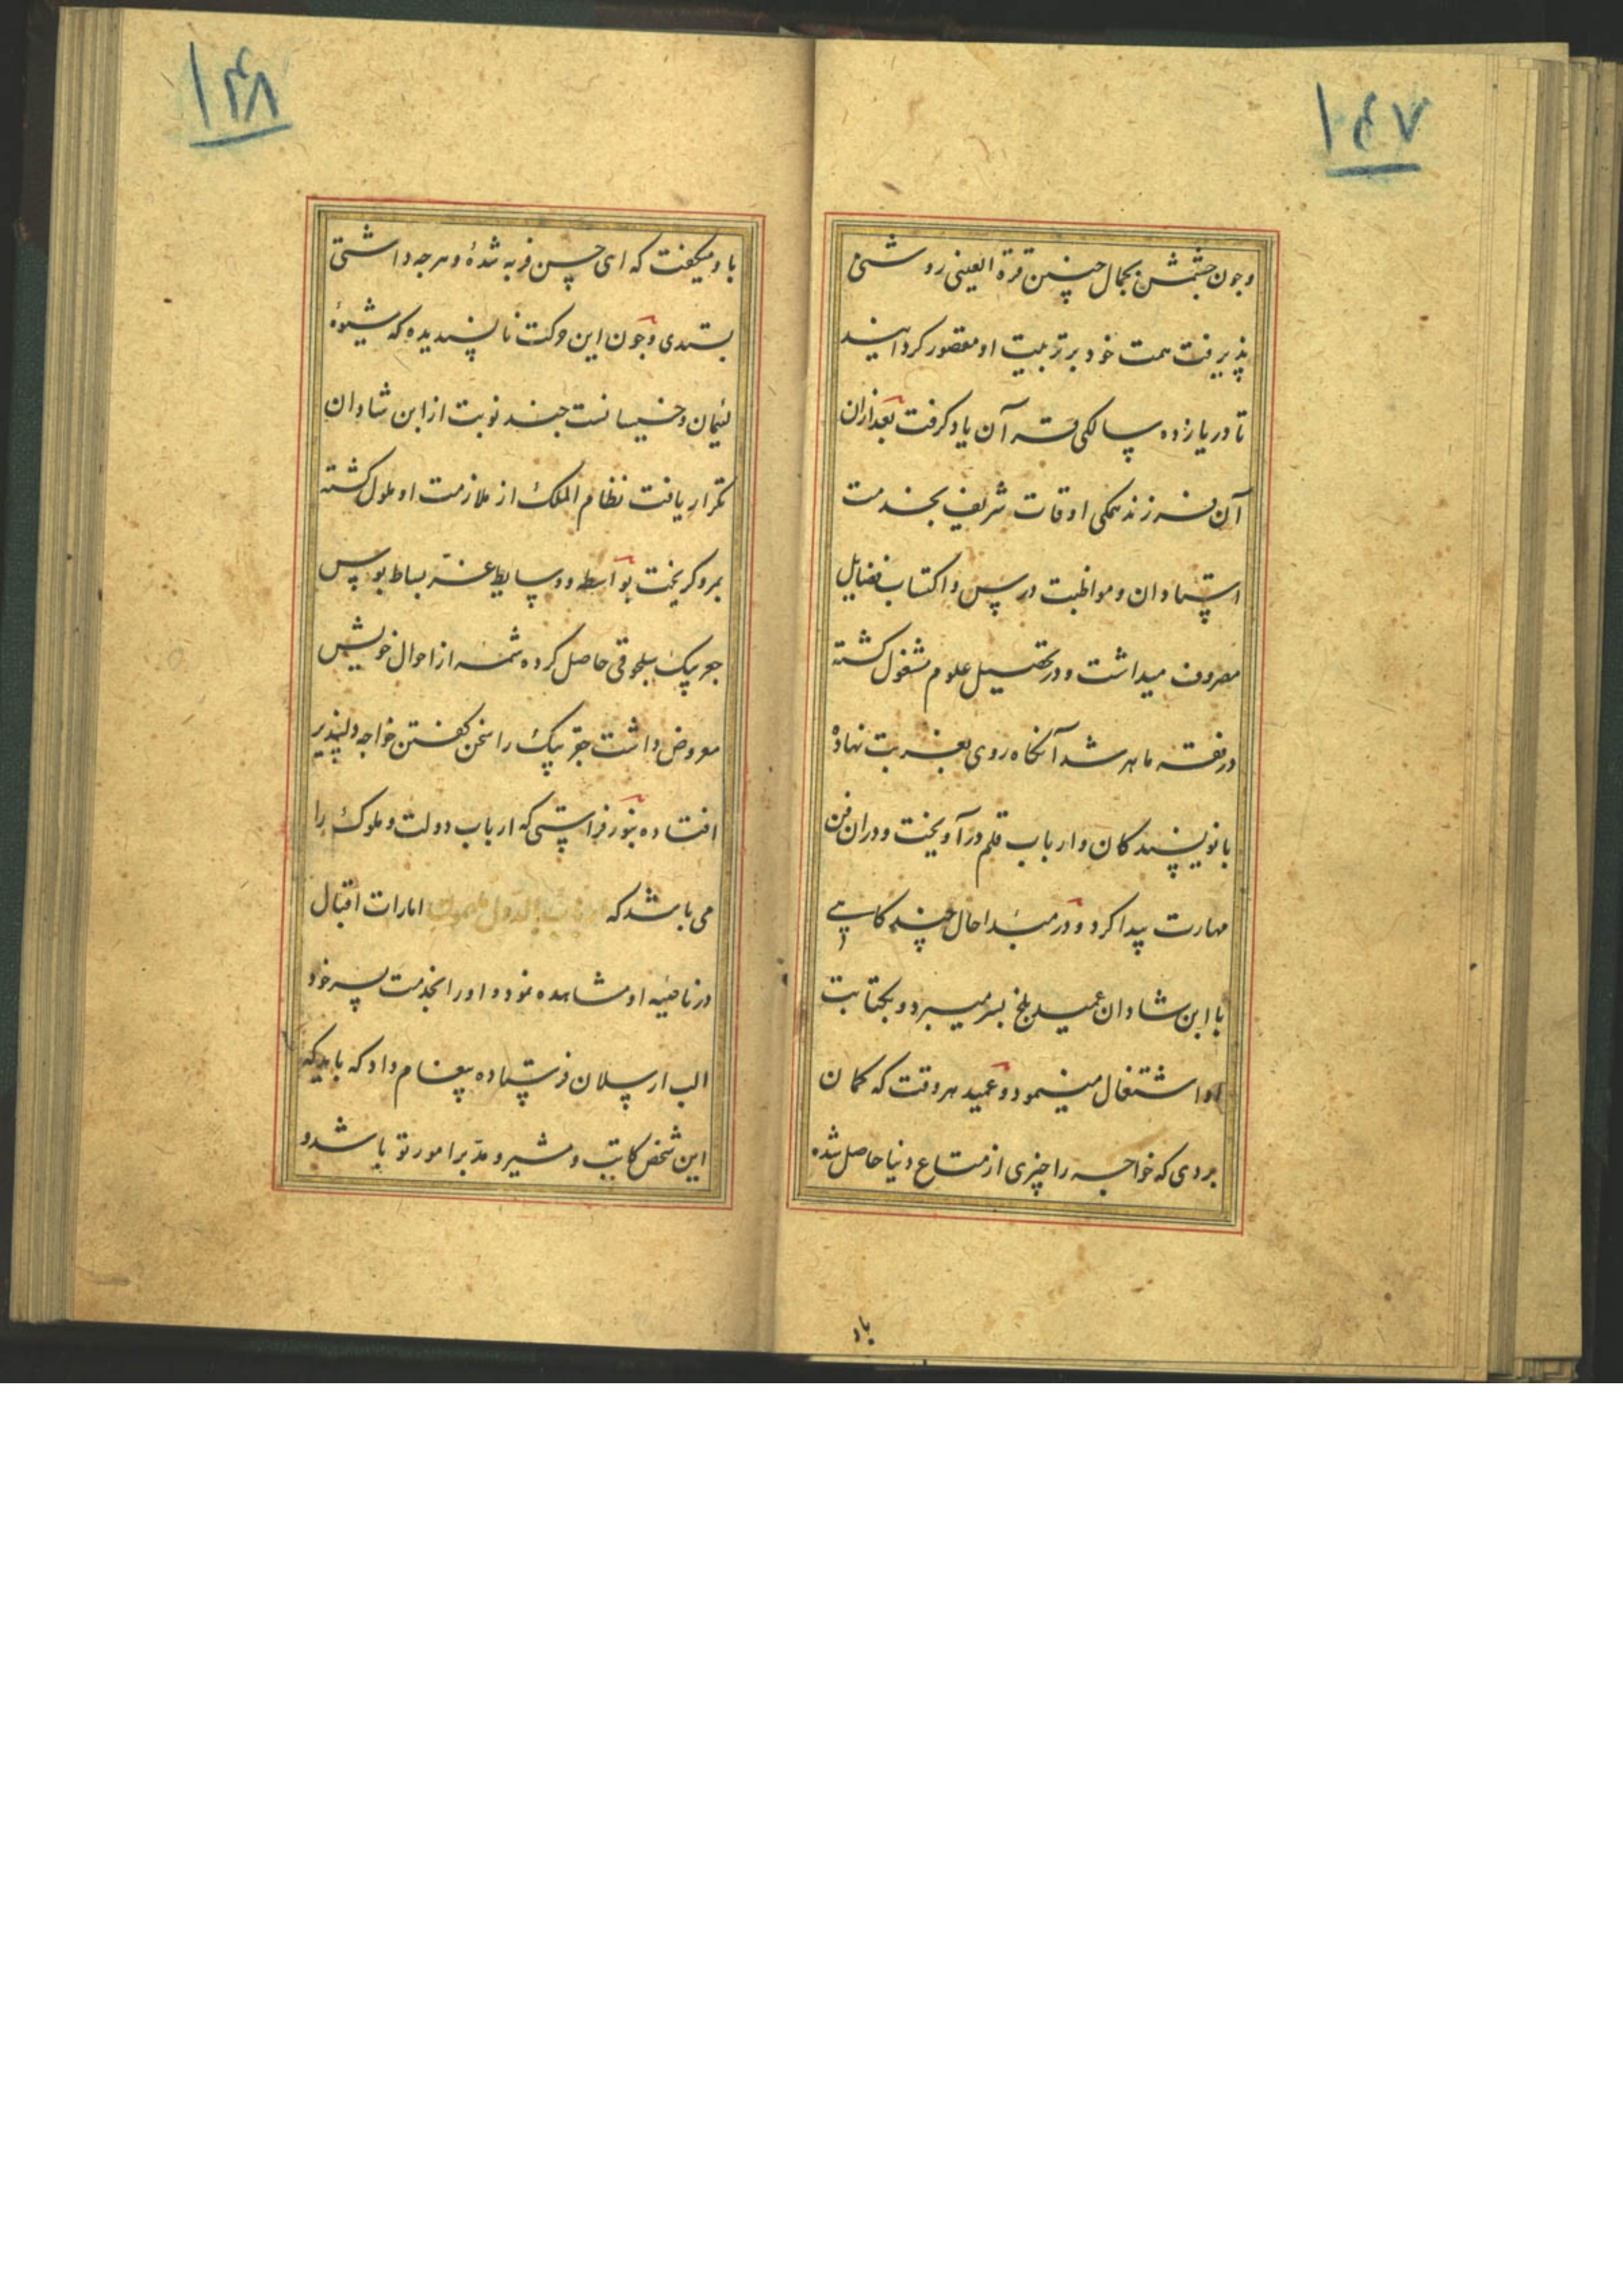 ۱۴۷
وجون چشمش بجمال چنین قرة العینی روشنی
پذیرفت همت خود بر تربیت او مقصور کردانید
تا در یازده سالکی قرآن یاد کرفت بعدازان
آن فرزند همکی اوقات شریف بخدمت
استادان و مواظبت درس و اکتساب فضایل
مصروف میداشت و در تحصیل علوم مشغول کشته
در فقه ماهر شد آنکاه روی بغربت نهاده
با نویسندکان و ارباب قلم درآویخت و دران فن
مهارت پیدا کرد و در مبداحال چند کاهی
با ابن شادان عمید بلخ بسر میبرد و بکتابت
او اشتغال مینمود و عمید هر وقت که کمان
بردی که خواجه را چیزی از متاع دنیا حاصل شده
باو
۱۴۸
باو میکفت که ای حسن فربه شدهٔ و هرجه داشتی
بستدی و جون این حرکت ناپسندیده که شیوهٔ
لئیمان و خسیسانست جند نوبت از ابن شادان
تکرار یافت نظام الملک از ملازمت او ملول کشته
بمرو کریخت بواسطه وسایط عز بساط بوس
جغر بیک سلجوقی حاصل کرده شمه از احوال خویش
معروض داشت جغر بیک را سخن کفتن خواجه دلپذیر
افتاده بنور فراستی که ارباب دولت و ملوک را
می باشد که امارات اقبال
در ناصیه او مشاهده نمود و اورا بخدمت پسر خود
الب ارسلان فرستاده پیغام داد که باید که
این شخص کاتب و مشیر و مدبر امور تو باشد و